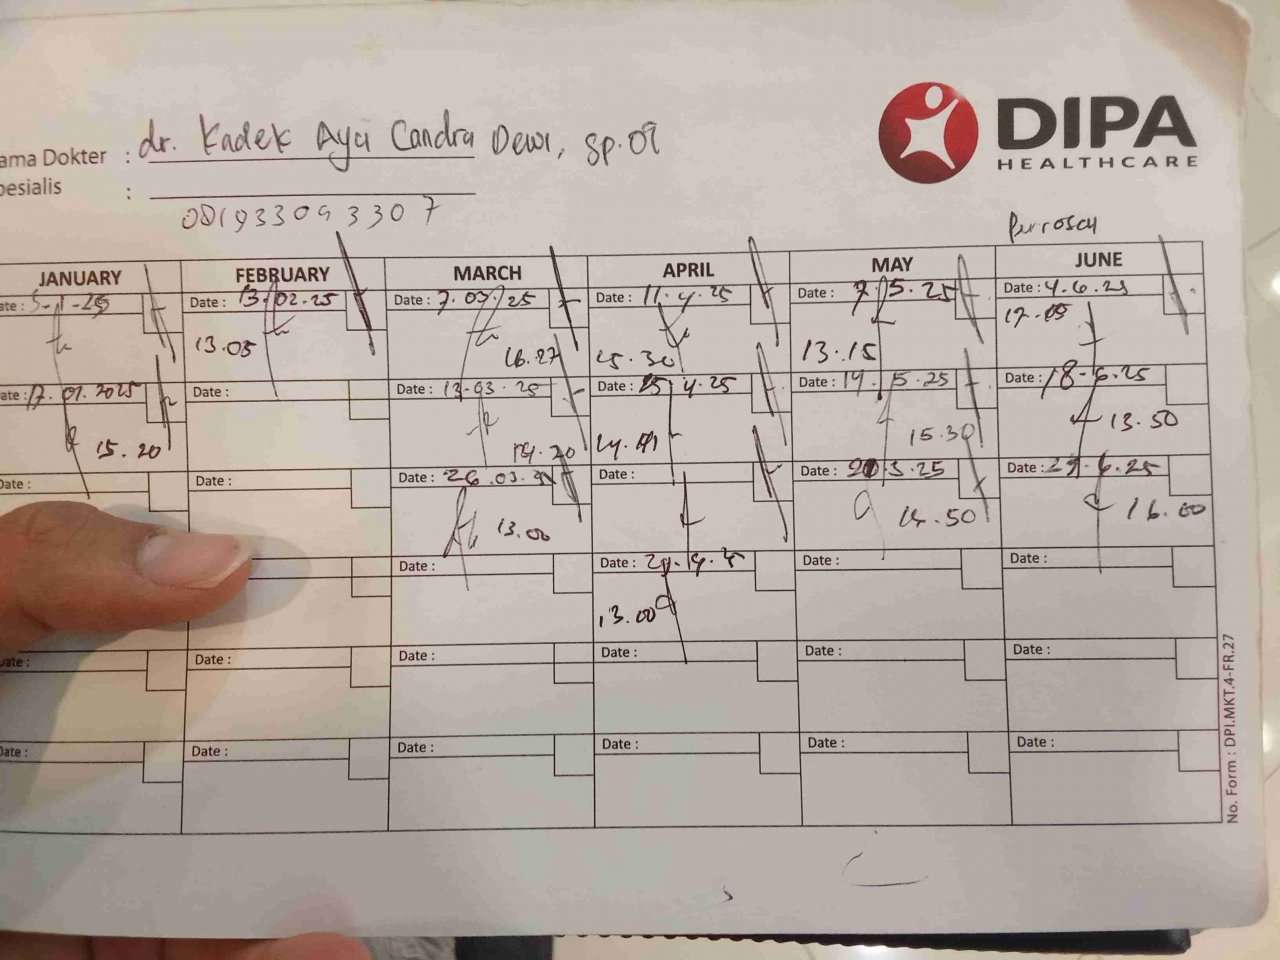 DIPA
HEALTHCARE
ama Dokter : dr. Kadek Ayu Candra Dewi, Sp.OG
pesialis :
081933093307
JANUARY FEBRUARY MARCH APRIL MAY JUNE
ate : 3-1-25 Date : 13.02.25 Date : 7.03.25 Date : 11.4.25 Date : 7.5.25 Date : 4.6.25
13.05 16.27 15.30 13.15 17.05
ate : 17.01.2025 Date : Date : 13-03.25 Date : 4.25 Date : 14.5.25 Date : 18-6.25
15.20 15.30 13.50
Date : Date : Date : 26.03. Date : 5.25 Date : 6.25
13.00 14.50 16.00
Date : Date : 4. Date : Date :
13.00
Date : Date : Date : Date : Date : Date :
Date : Date : Date : Date : Date : Date :
No. Form : DPI.MKT.4-FR.27